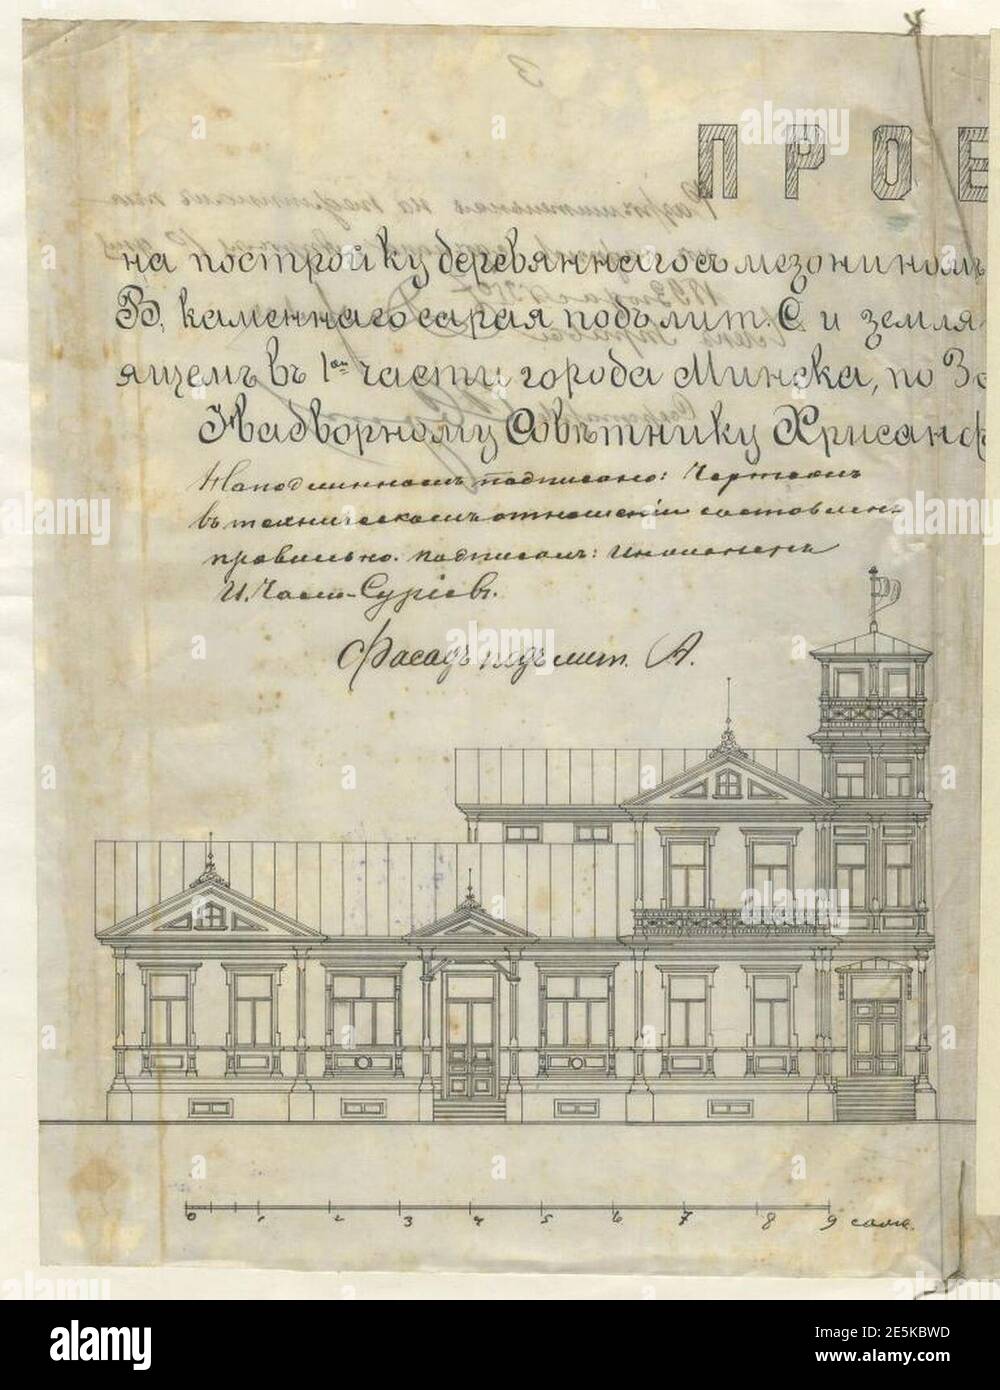 ПРОЕ
на постройку деревяннаго съ мезонином
В, каменнаго сарая подъ лит. С. и земля
ящемъ въ 1ой части города Минска, по За
Надворному Совѣтнику Хрисанф
На подлинномъ подписано: Чертежъ
въ техническомъ отношеніи составленъ
правильно. подписалъ: Инженеръ
Фасадъ подъ лит. А.
0 1 2 3 4 5 6 7 8 9 саж.
alamy
Image ID: 2E5KBWD
www.alamy.com